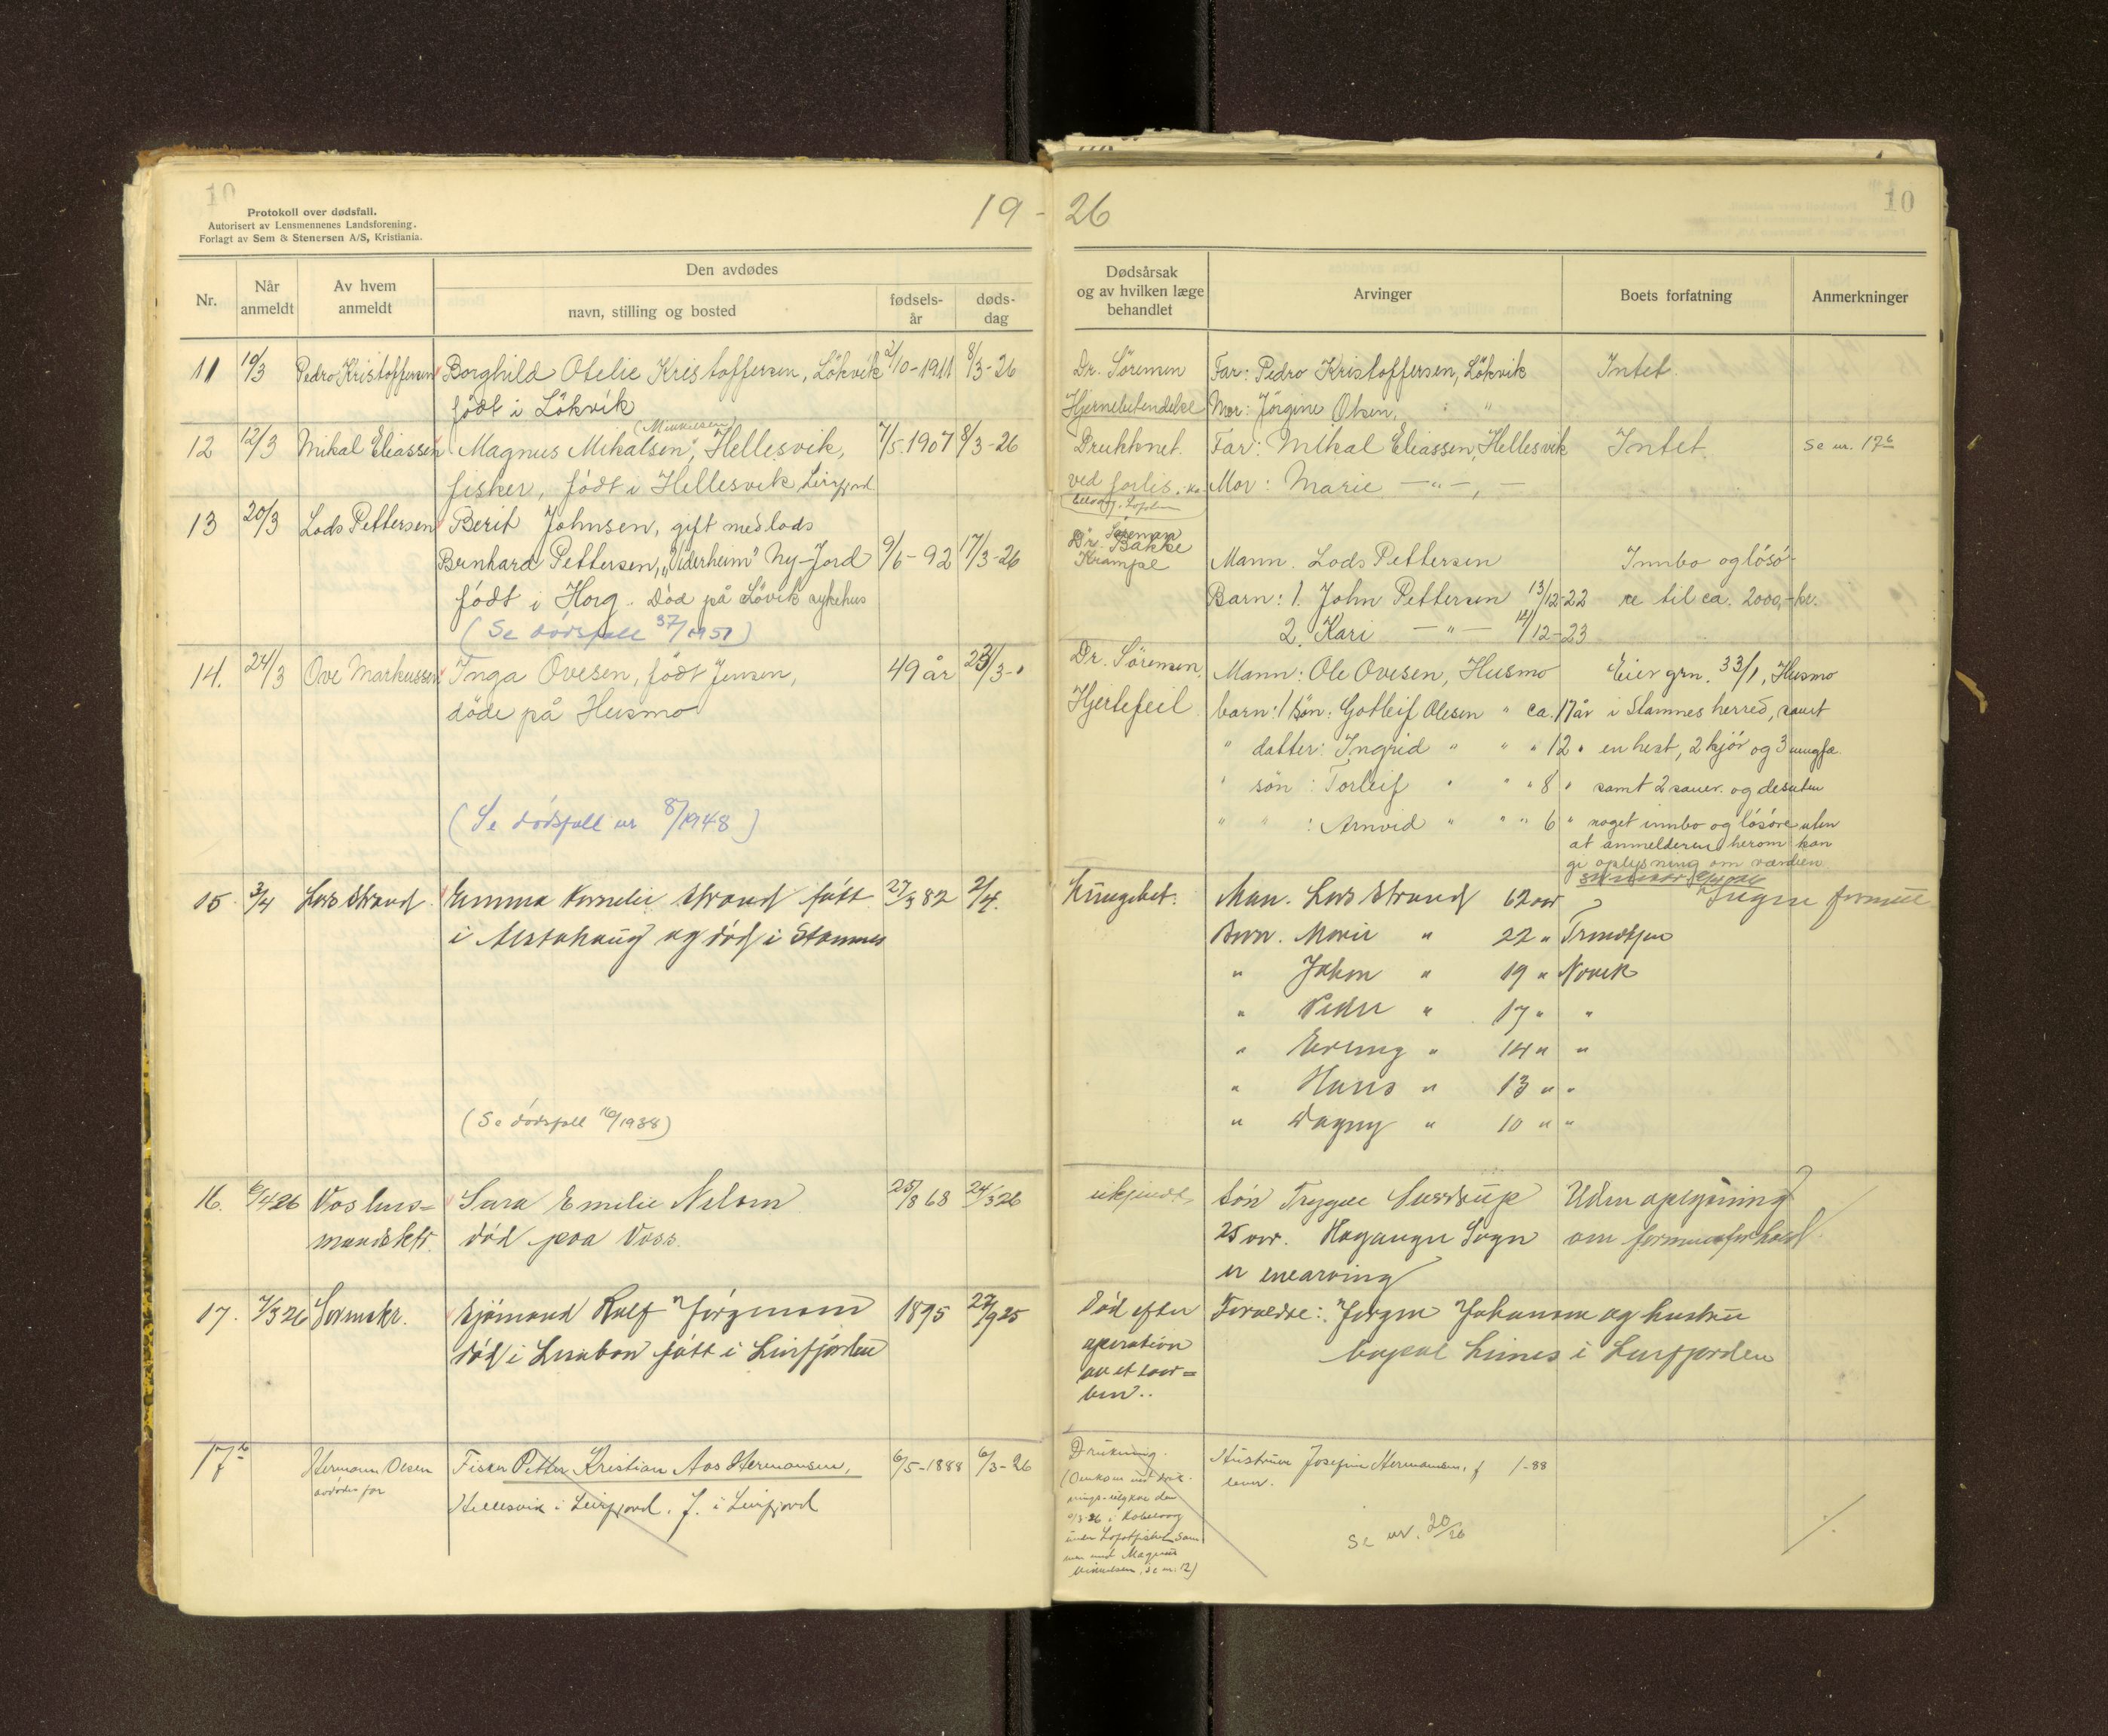 10
Protokoll over dødsfall.
Autorisert av Lensmennenes Landsforening.
Forlagt av Sem & Stenersen A/S, Kristiania.
19 - 26
10
Nr.
Når anmeldt
Av hvem anmeldt
Den avdødes
navn, stilling og bosted
fødsels-år
døds-dag
Dødsårsak og av hvilken læge behandlet
Arvinger
Boets forfatning
Anmerkninger
11 10/3 Pedro Kristoffersen Borghild Otelie Kristoffersen, Lökvik 2/10-1911 8/3-26
födt i Lökvik
Dr. Sörensen Far: Pedro Kristoffersen, Lökvik Intet.
Hjernebetendelse Mor: Jörgine Olsen, " "
12 12/3 Mikal Eliassen Magnus Mikalsen, (Mikkelsen) Hellesvik, 7/5-1907 8/3-26
fisker, födt i Hellesvik Leirfjord
Drukknet. Far: Mikal Eliassen, Hellesvik Intet. Se nr. 17b
ved forlis. Mor: Marie — " —, —
13 20/3 Lods Pettersen Berit Johnsen, gift med lods
Bernhard Pettersen, "Viderheim" Ny-Jord 9/6-92 17/3-26
födt i Horg. Död på Lövik sykehus
(Se dødsfall 37/1951)
Dr. Sörensen
Bakke
Krampe
Mann. Lods Pettersen Innbo og lösö-
Barn: 1. John Pettersen 13/12-22 re til ca. 2000,- kr.
2. Kari — " — 12/12-23
14. 24/3 Ove Markussen Inga Ovesen, födt Jensen, 49 år 23/3- "
döde på Husmo
(Se dødsfall nr 8/1948)
Dr. Sörensen. Mann: Ole Ovesen, Husmo Eier grn. 33/1, Husmo
Hjertefeil barn: 1 sön: Gotleif Olesen " ca. 17 år i Stamnes herred, samt
" datter: Ingrid " " " 12 " en hest, 2 kjör og 3 ungfæ.
" sön : Torleif " " " 8 " samt 2 sauer. og desuten
" " : Arnvid " " " 6 " noget innbo og lösöre uten
at anmelderen herom kan
gi oplysning om værdien.
15 3/4 Lars Strand Emma Kornelie Strand fött 27/3 82 2/4.
i Alstahaug og död i Stamnes
(Se dødsfall 16/1938)
Man. Lars Strand 62 aar Ingen formue
Barn. Marie " 22 " Trondhjem
" Johan " 19 " Novik
" Peder " 17 " "
" Erling " 14 " "
" Hans " 13 " "
" Dagny " 10 " "
16. 6/4 26 Vos lens=
mandsktr.
Sara Emilie Nilsen 25/8 68 24/3 26
död paa Voss.
ukjendt, Sön Trygve 25 aar. Sogn
er enearving
Uden oplysning
om formuesforhold.
17. 7/3 26 Sjömand Rolf Jörgensen 1895 27/9 25
död i fött i Leirfjorden
Död efter
operation
av et saar=
ben..
Foreldre: Jørgen Johansen og hustru
i Leirfjorden
17b Hermann Olsen
avdødes far
Fisker Petter Kristian Aas Hermansen, 6/5-1888 6/3-26
Hellesvik i Leirfjord. f. i Leirfjord
Drukning.
under Lofotfisket sam
men med Magnus
Mikkelsen, se nr. 12)
Hustruen Josefine Hermansen, f. /-88
lever.
Se nr. 20/26